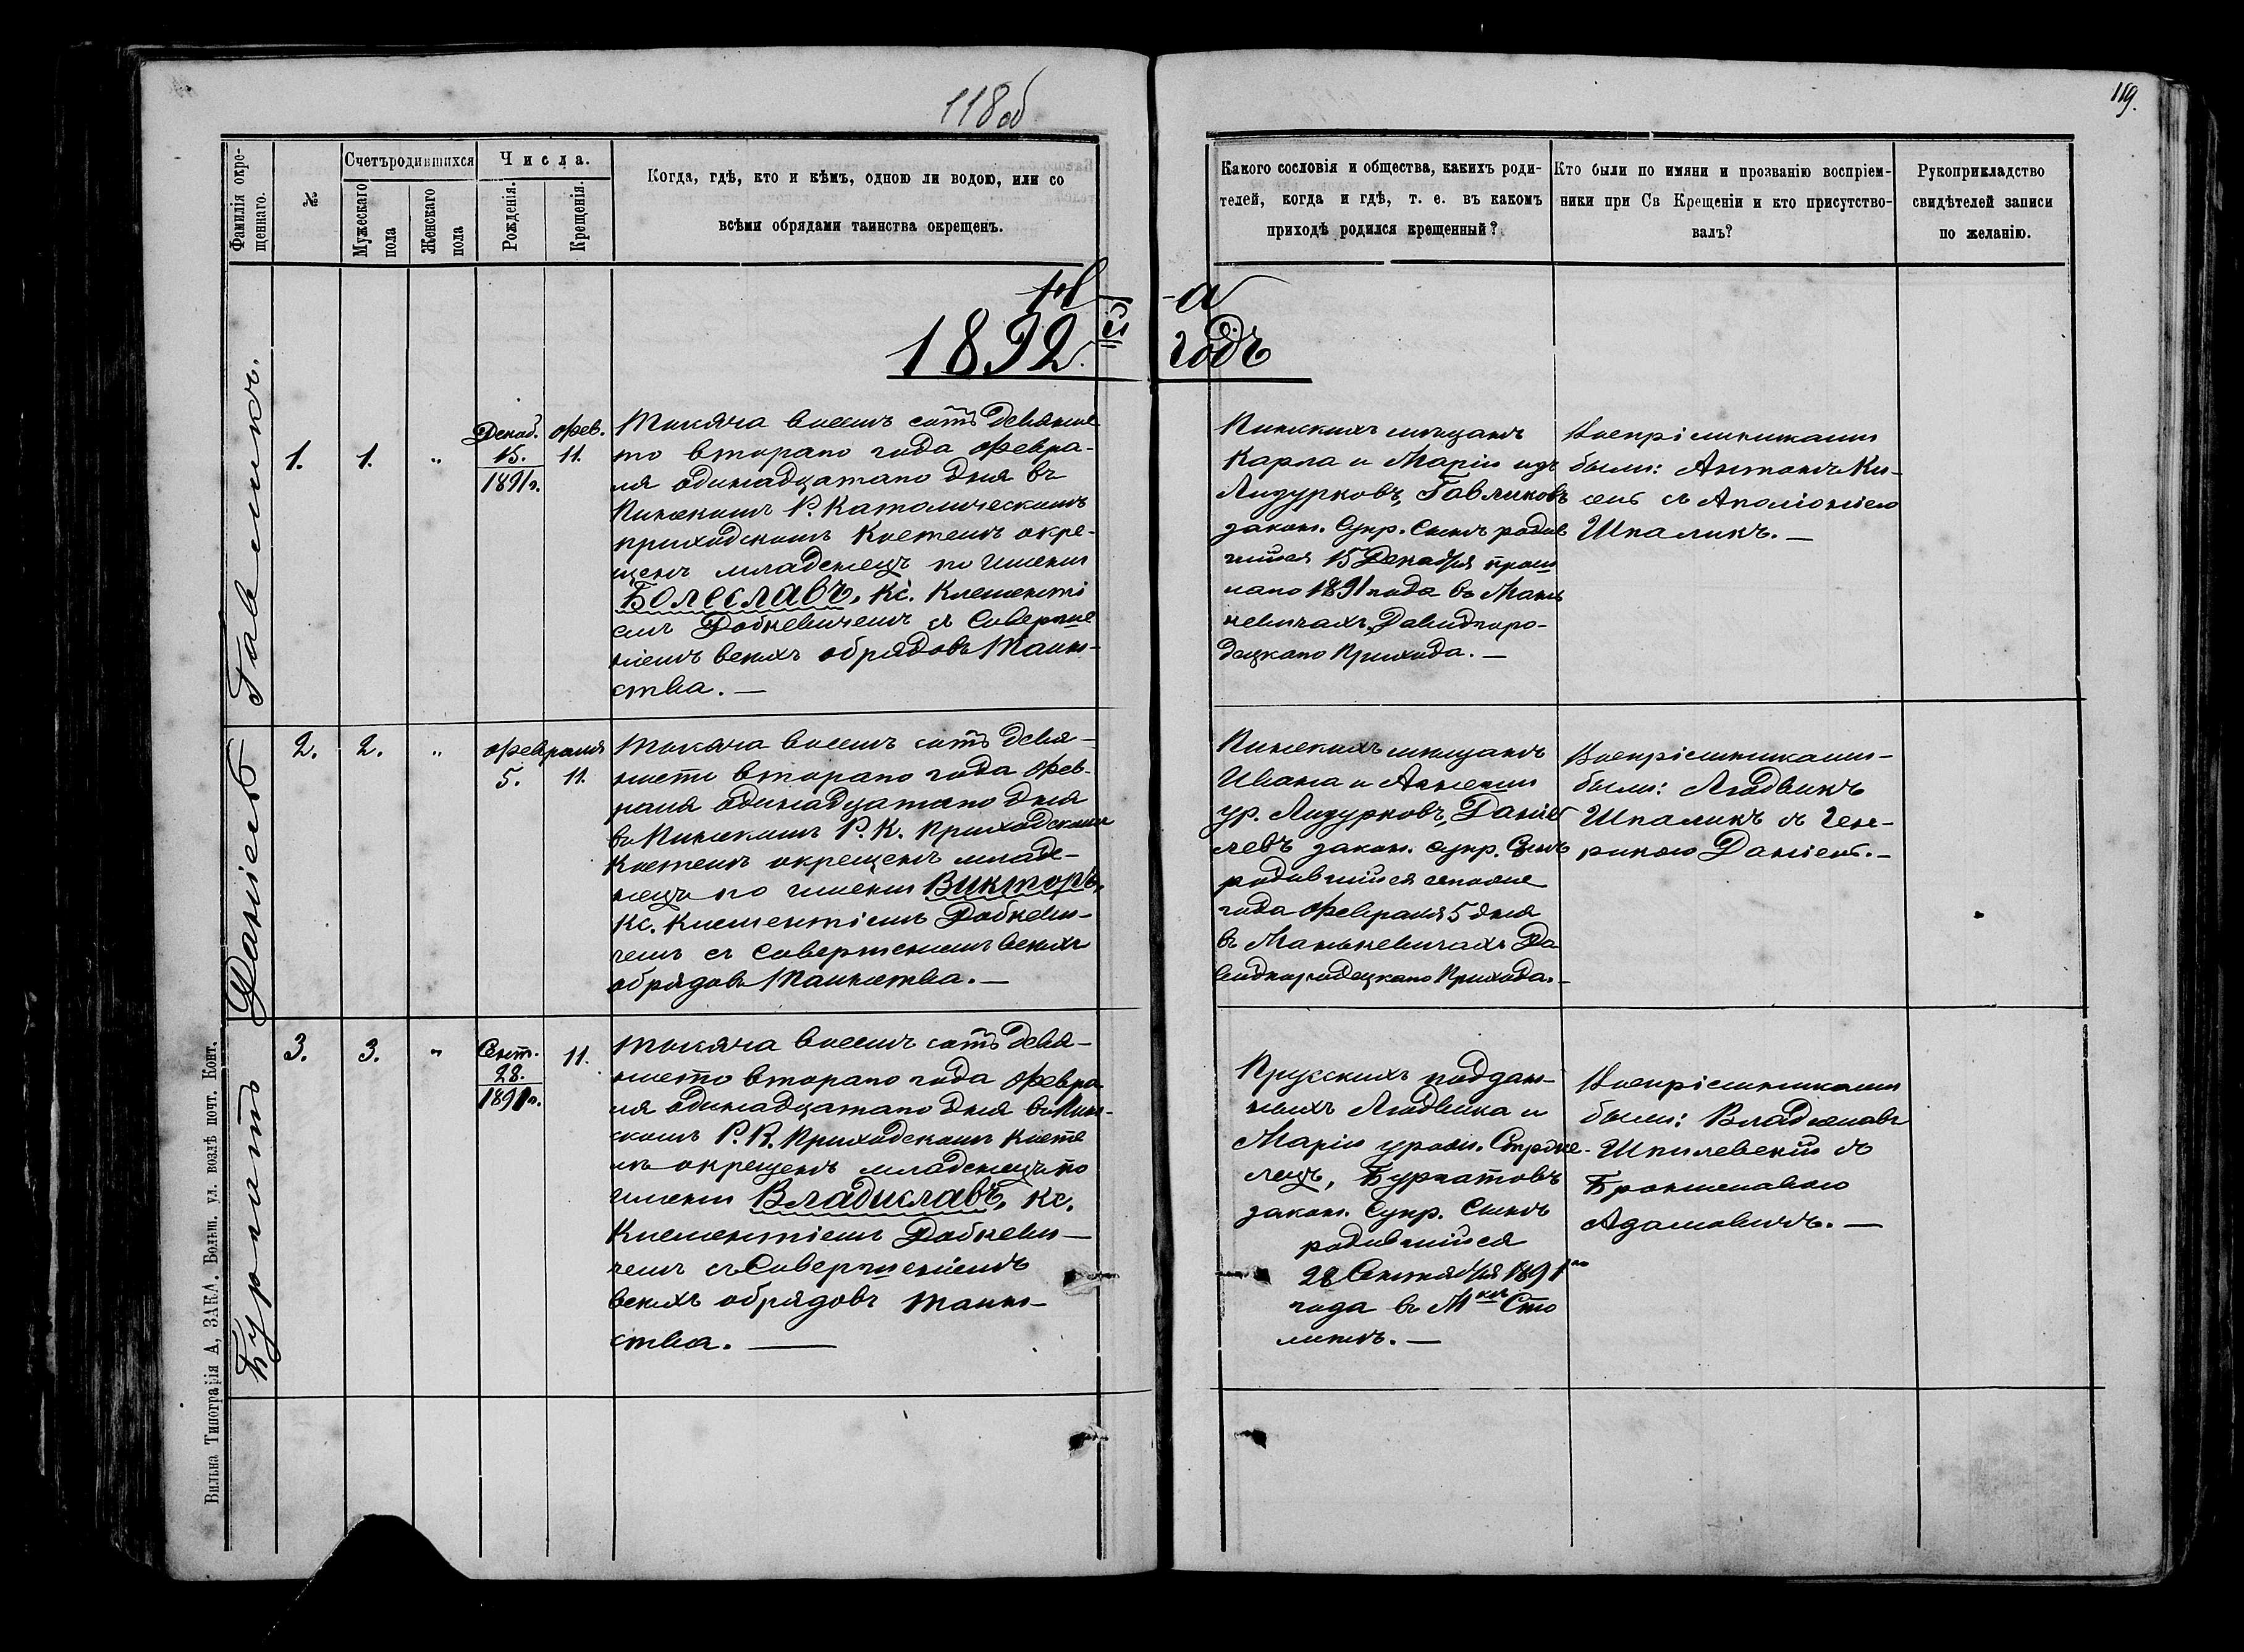 118 об
119.
Фамилія окре-
щеннаго.
№
Счетъ родившихся
Мужескаго
пола
Женскаго
пола
Числа.
Рожденія.
Крещенія.
Когда, гдѣ, кто и кѣмъ, одною ли водою, или со
всѣми обрядами таинства окрещенъ.
Какого сословія и общества, какихъ роди-
телей, когда и гдѣ, т. е. въ какомъ
приходѣ родился крещенный?
Кто были по имяни и прозванію воспріем-
ники при Св Крещеніи и кто присутство-
валъ?
Рукоприкладство
свидѣтелей записи
по желанію.
1892. годъ
Гавликъ.
1.
1.
"
Декаб.
15.
1891 г.
Фев.
11.
Тысяча восемь сотъ девяно
то втораго года Февра-
ля одинадцатаго дня въ
Пинскомъ Р. Католическомъ
приходскомъ Костелѣ окре-
щенъ младенецъ по имени
Болеславъ, Кс. Клементі
емъ Добкевичемъ съ Соверше
ніемъ всѣхъ обрядовъ Таин-
ства. —
Пинскихъ мѣщанъ
Карла и Маріи изъ
Лидурковъ, Гавликовъ
закон. Супр. Сынъ родив
шійся 15 Декабря прош
лаго 1891 года въ Мань
кевичахъ Давидгоро-
децкаго Прихода. —
Воспріемниками
были: Антонъ Ки-
сель съ Аполіоніею
Шпаликъ. —
Даніель
2.
2.
"
Февраля
5.
11.
Тысяча восемь сотъ девя-
носто втораго года Фев-
раля одинадцатаго дня
въ Пинскомъ Р. К. Приходскомъ
Костелѣ окрещенъ младе-
нецъ по имени Викторъ,
Кс. Клементіемъ Добкеви-
чемъ съ Совершеніемъ всѣхъ
обрядовъ Таинства. —
Пинскихъ мѣщанъ
Ивана и
ур. Лидурковъ, Даніе
левъ закон. супр. Сынъ
родившійся сего же
года Февраля 5 дня
въ Манькевичахъ Да
видгородецкаго Прихода. —
Воспріемниками
были: Людвикъ
Шпаликъ съ Ген-
рикою Даніель. —
Бургатъ
3.
3.
"
Сент.
28.
1891 г.
11.
Тысяча восемь сотъ девя-
носто втораго года Февра
ля одинадцатаго дня въ Пин-
скомъ Р. К. Приходскомъ Косте
лѣ окрещенъ младенецъ по
имени Владиславъ, Кс.
Клементіемъ Добкеви-
чемъ съ Совершеніемъ
всѣхъ обрядовъ таин-
ства. —
Прусскихъ поддан-
ныхъ Людвика и
Маріи урожд.
Бургатовъ
закон. Супр. Сынъ
родившійся
28 Сентября 1891 го
года въ М кѣ Сто
линѣ. —
Воспріемниками
были: Владиславъ
Шпилевскій съ
Брониславою
Адамовичъ. —
Вильна Типографія А, ЗАКА. Больш. ул. возлѣ почт. Конт.